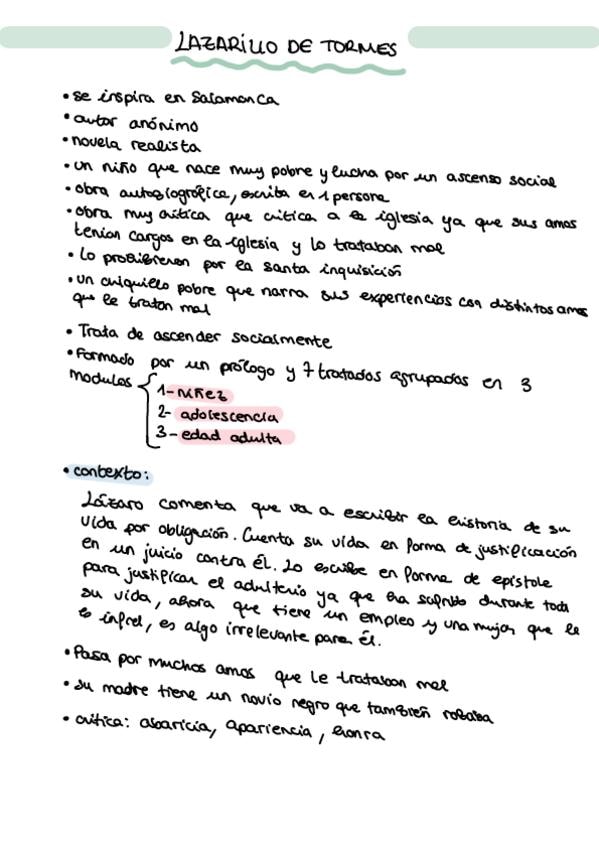 LAZARILLO DE TORMES
• se inspira en Salamanca
• autor anónimo
• novela realista
• un niño que nace muy pobre y lucha por un ascenso social
• obra autobiográfica, escrita en 1 persona
• obra muy crítica que critica a la iglesia ya que sus amos
tenian cargos en la iglesia y lo trataban mal
• Lo prohibieron por la santa inquisición
• un chiquillo pobre que narra sus experiencias con distintos amos
que le tratan mal
• Trata de ascender socialmente
• Formado por un prólogo y 7 tratados agrupados en 3
modulos
1- niñez
2- adolescencia
3- edad adulta
• contexto:
Lázaro comenta que va a escribir la historia de su
vida por obligación. Cuenta su vida en forma de justificación
en un juicio contra él. Lo escribe en forma de epístole
para justificar el adulterio ya que ha sufrido durante toda
su vida, ahora que tiene un empleo y una mujer que le
es infiel, es algo irrelevante para él.
• Pasa por muchos amos que le trataban mal
• su madre tiene un novio negro que también robaba
• critica: abaricia, apariencia, honra